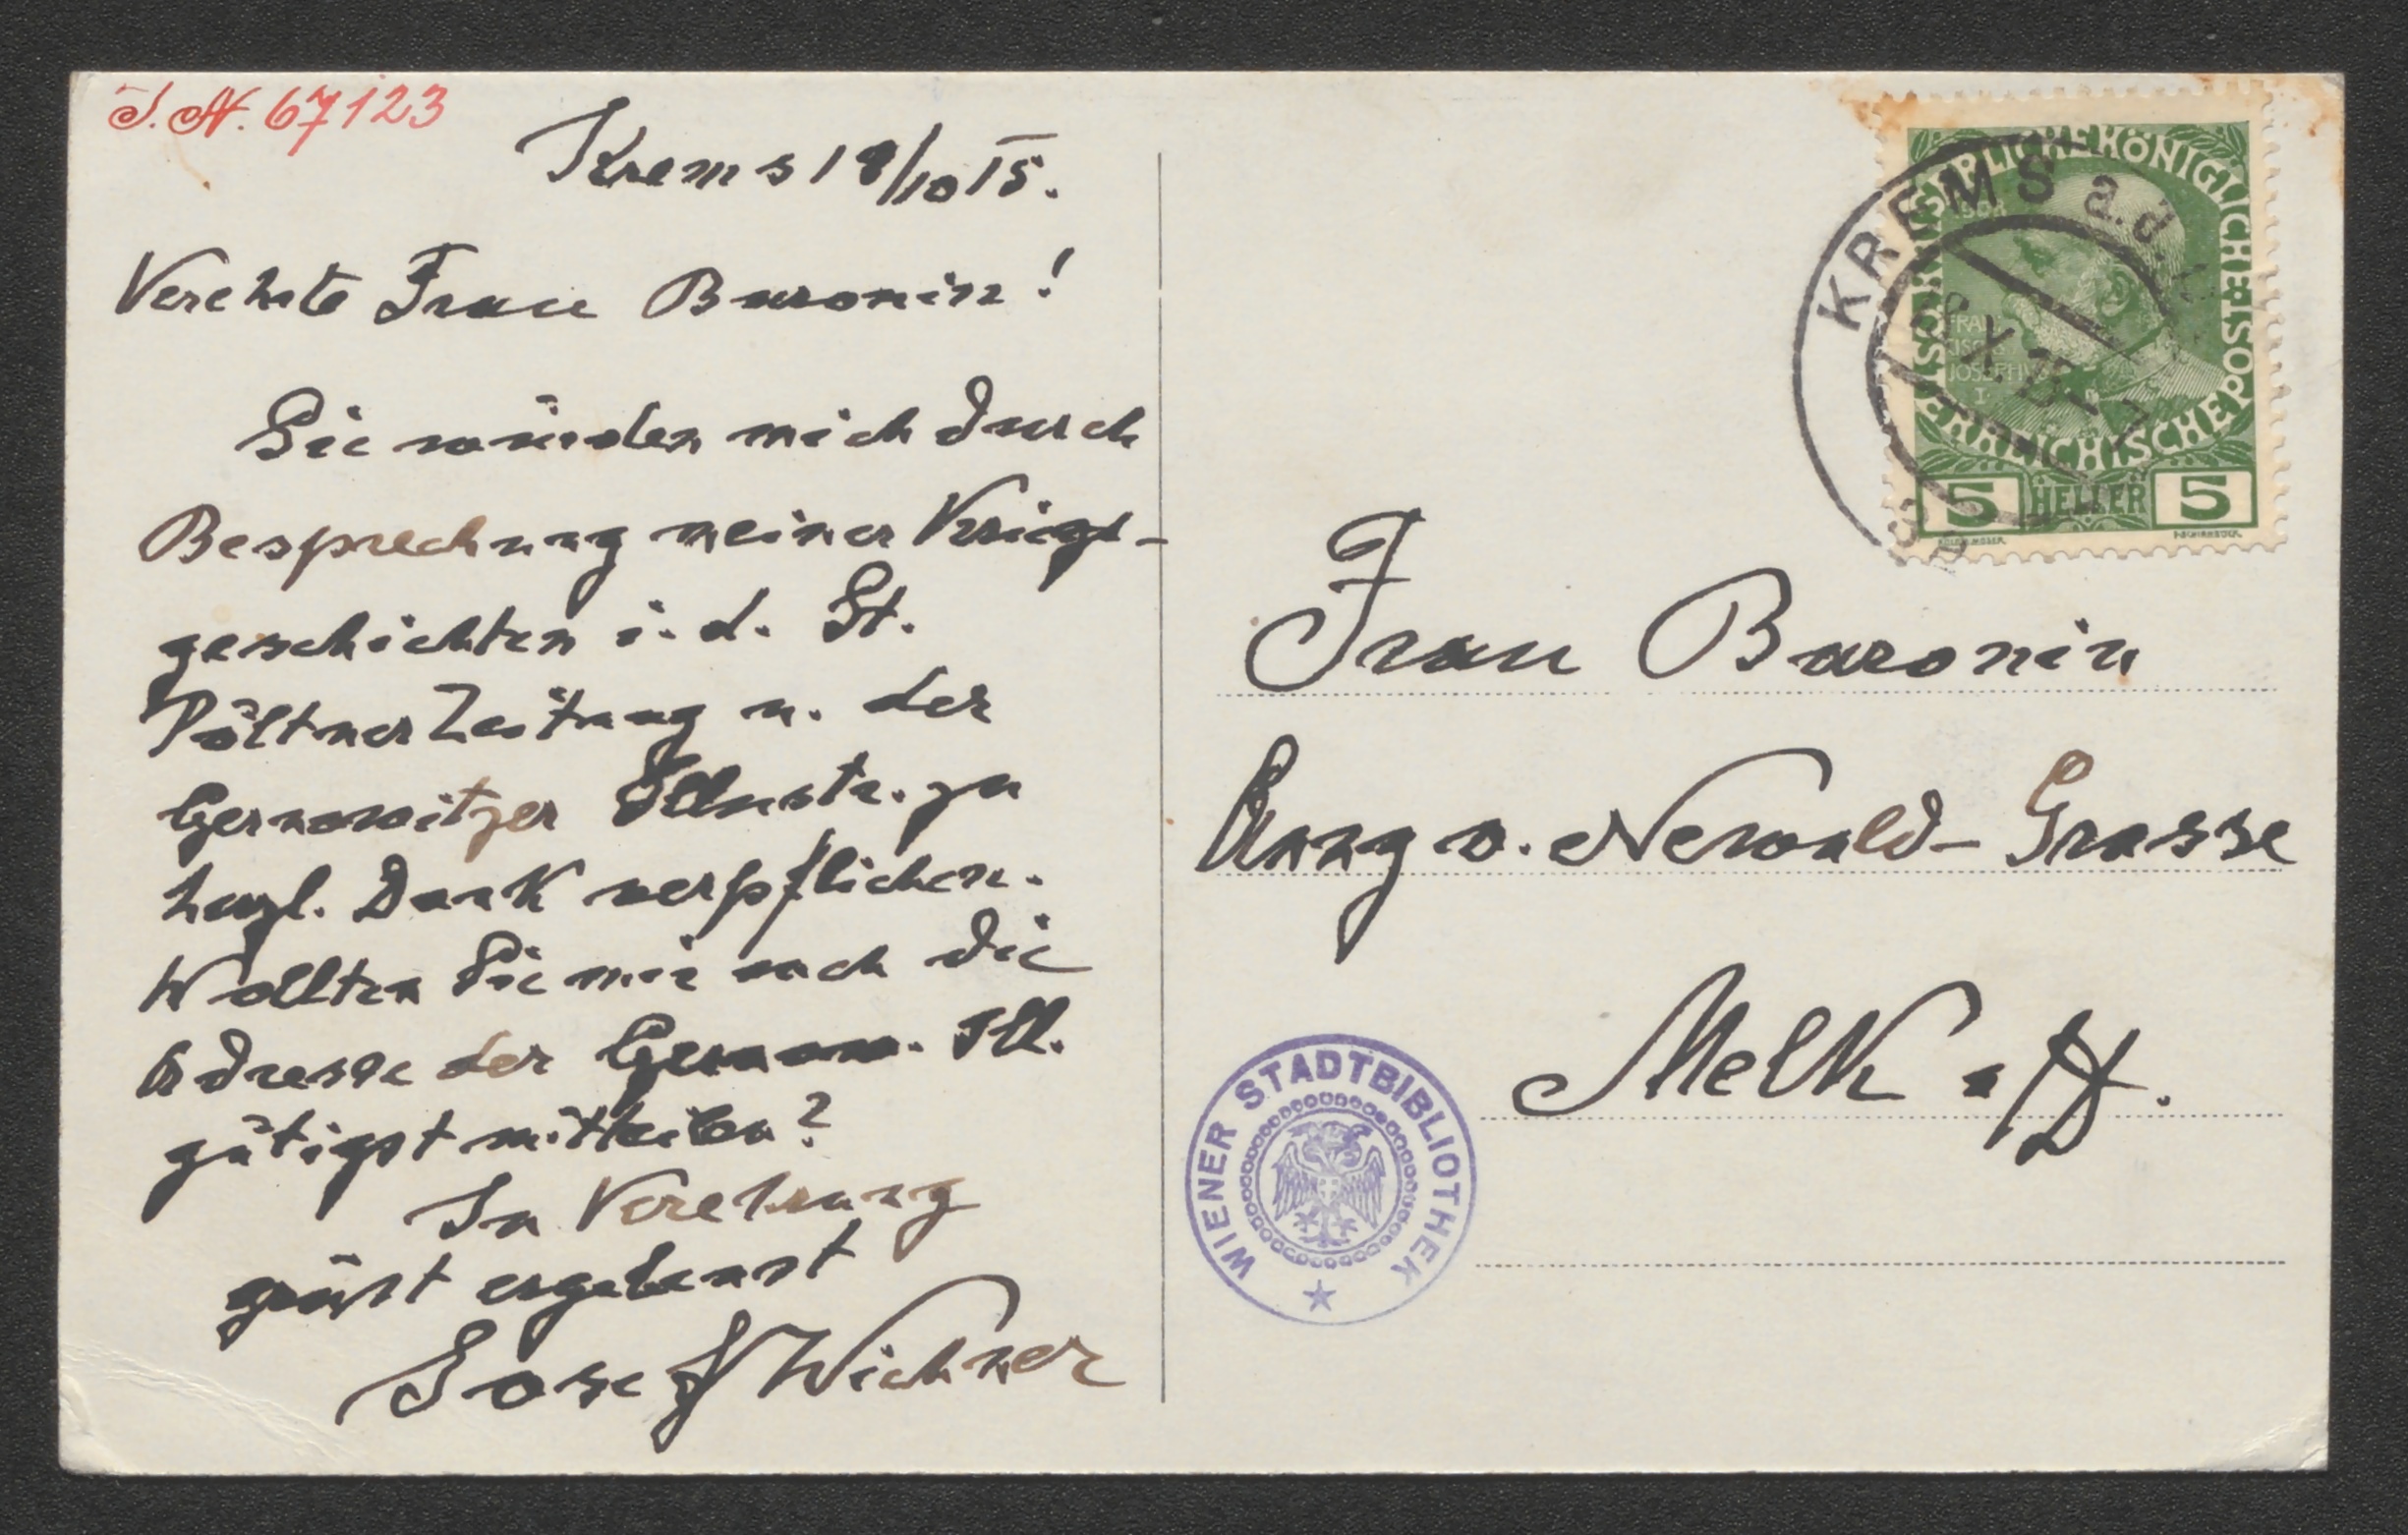 I. N. 67123
Krems 18/10 15.
Verehrte Frau Baronin!
Sie würden mich durch
Besprechung meiner Kriegs-
geschichten i. d. St.
Pöltner Zeitung u. der
Cernowitzer Illustr. zu
herzl. Dank verpflichten.
Wollten Sie mir auch die
Adresse der Cernow. Ill.
gütigst mitteilen?
In Verehrung
grüßt ergebenst
Josef Wichner
KREMS a. d.
X. 15 - 7
KAISERLICHE KÖNIGLICHE POST
ÖSTERREICHISCHE
FRANCISCVS JOSEPHVS I.
5 HELLER 5
Frau Baronin
v. Newald-Grasse
Melk a/D.
WIENER STADTBIBLIOTHEK